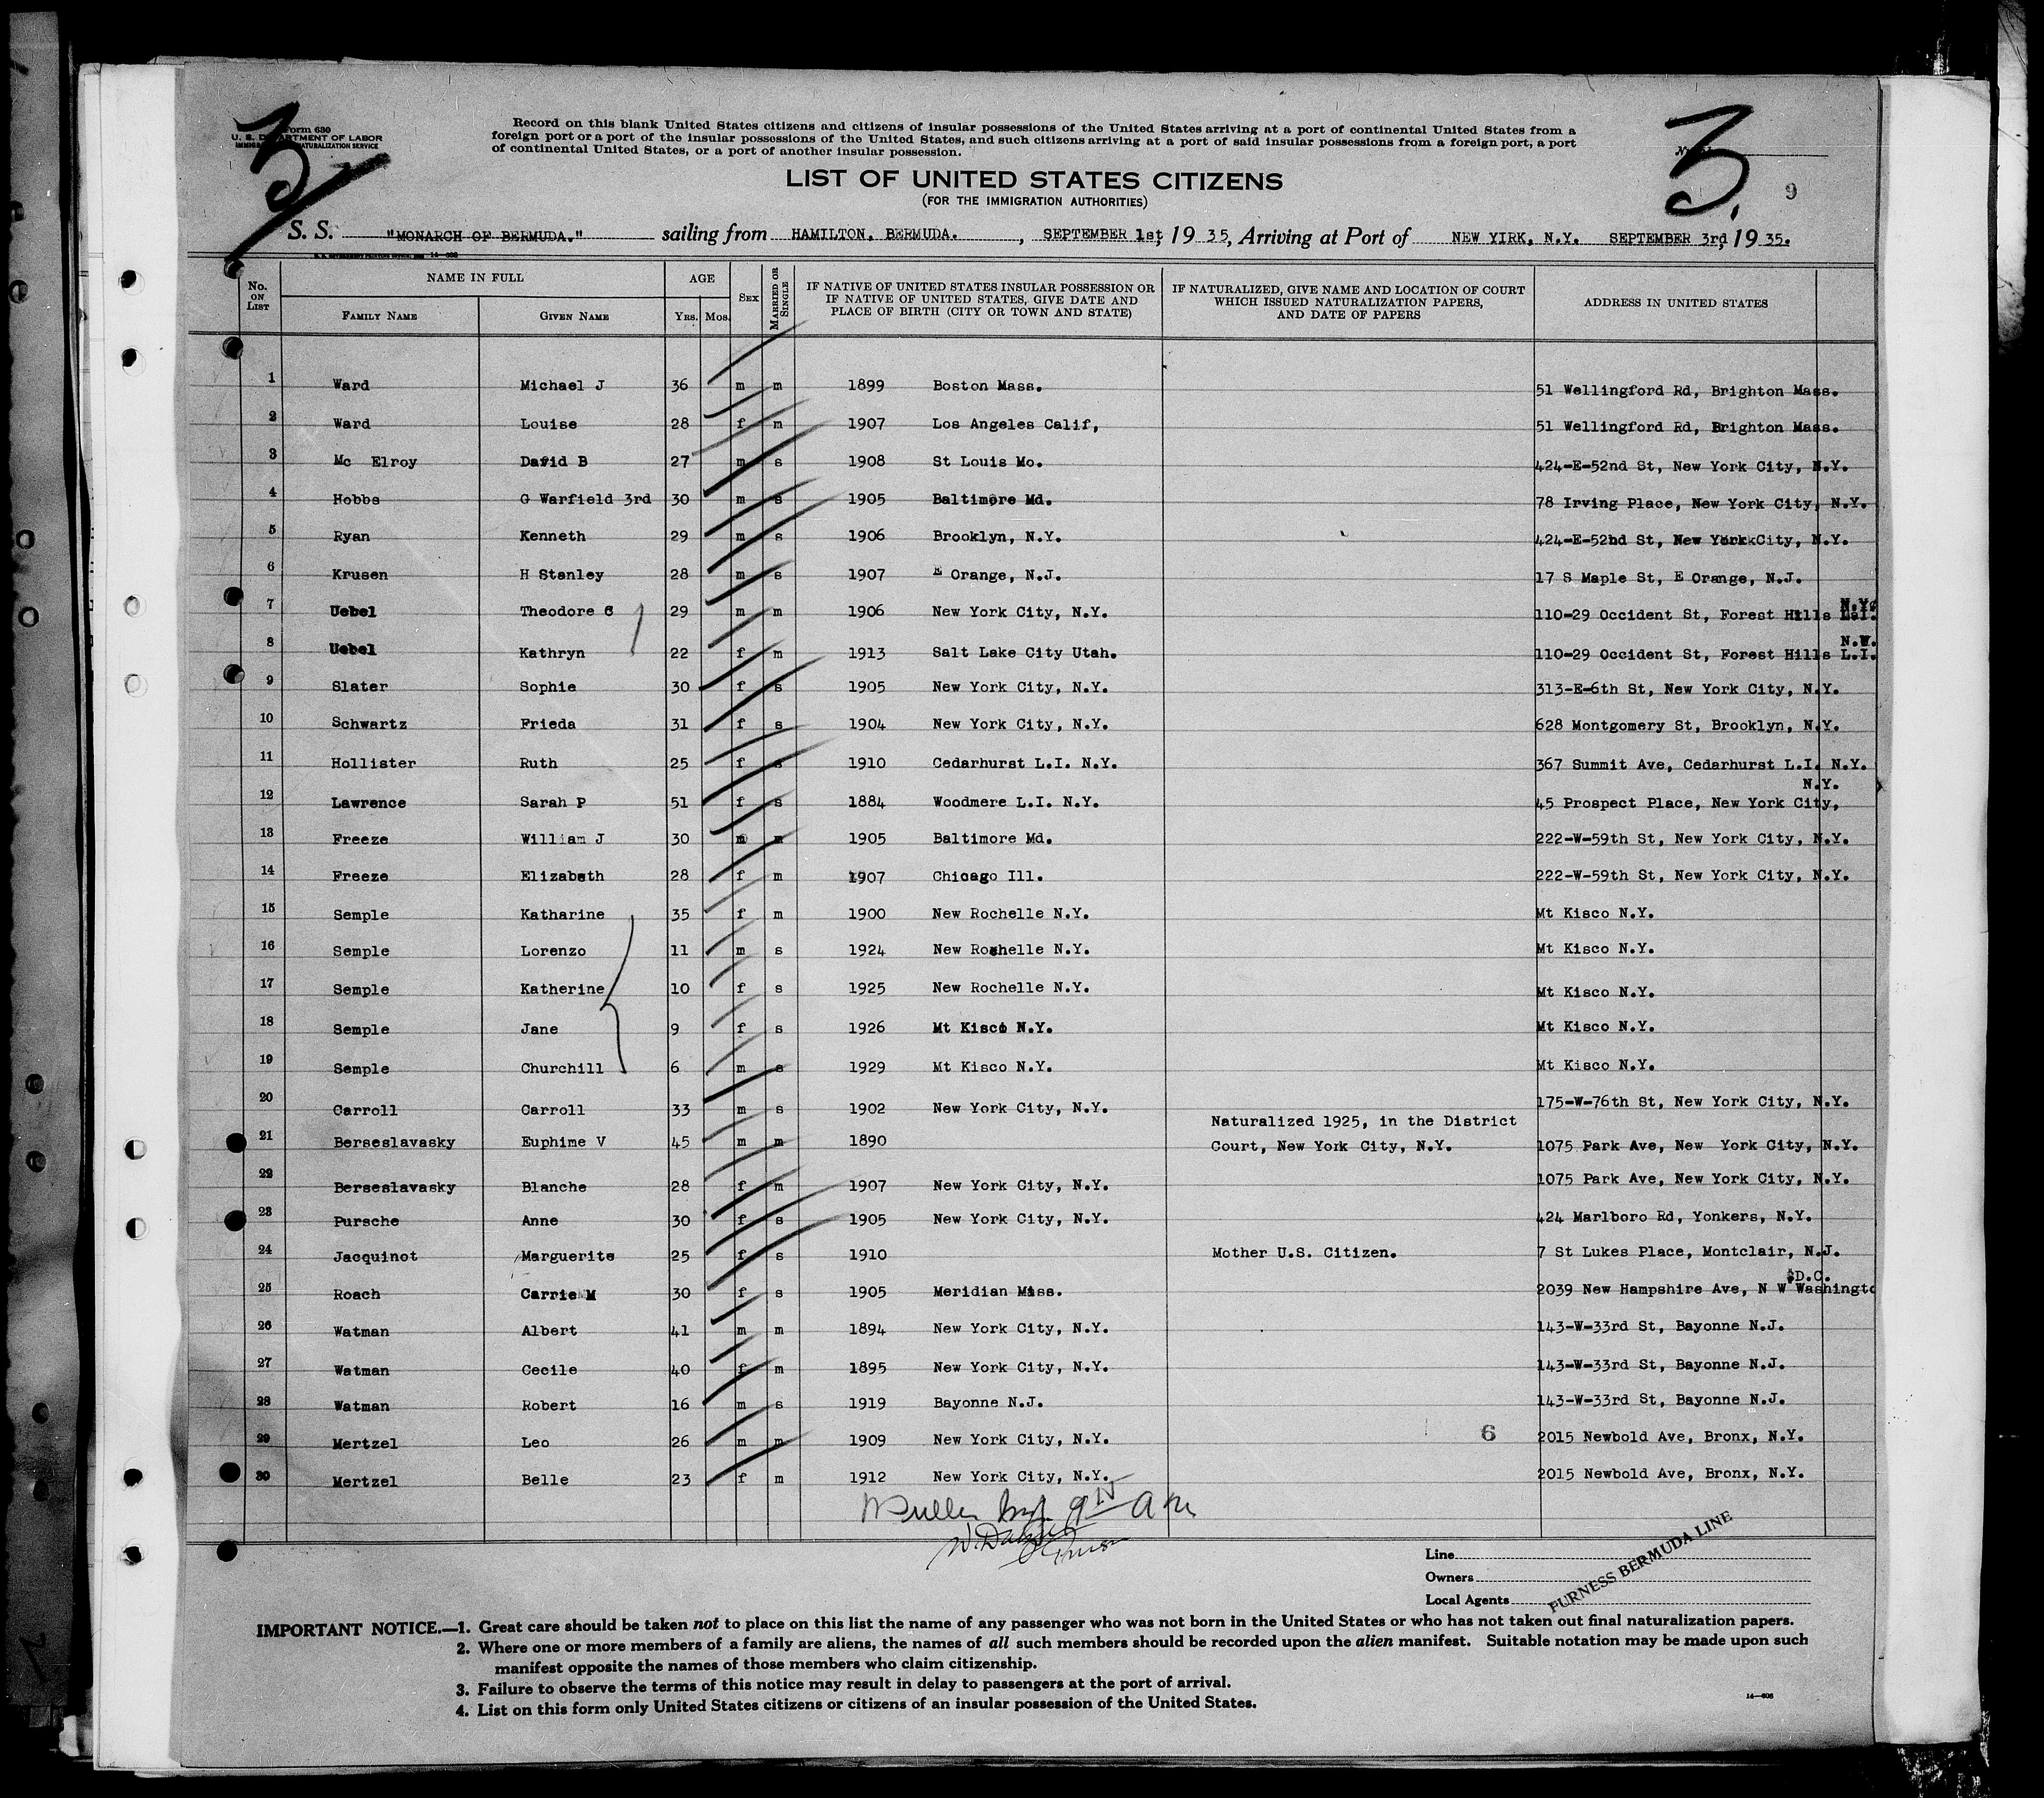 3
Form 630
U. S. DEPARTMENT OF LABOR
IMMIGRATION AND NATURALIZATION SERVICE
Record on this blank United States citizens and citizens of insular possessions of the United States arriving at a port of continental United States from a
foreign port or a port of the insular possessions of the United States, and such citizens arriving at a port of said insular possessions from a foreign port, a port
of continental United States, or a port of another insular possession.
3
9
LIST OF UNITED STATES CITIZENS
(FOR THE IMMIGRATION AUTHORITIES)
S. S. "MONARCH OF BERMUDA." sailing from HAMILTON, BERMUDA. , SEPTEMBER 1st, 19 35, Arriving at Port of NEW YIRK, N.Y. SEPTEMBER 3rd, 19 35.
No. ON LIST NAME IN FULL FAMILY NAME GIVEN NAME AGE YRS. MOS. SEX MARRIED OR SINGLE IF NATIVE OF UNITED STATES INSULAR POSSESSION OR IF NATIVE OF UNITED STATES, GIVE DATE AND PLACE OF BIRTH (CITY OR TOWN AND STATE) IF NATURALIZED, GIVE NAME AND LOCATION OF COURT WHICH ISSUED NATURALIZATION PAPERS, AND DATE OF PAPERS ADDRESS IN UNITED STATES
1 Ward Michael J 36 m m 1899 Boston Mass. 51 Wellingford Rd, Brighton Mass.
2 Ward Louise 28 f m 1907 Los Angeles Calif, 51 Wellingford Rd, Brighton Mass.
3 Mc Elroy David B 27 m s 1908 St Louis Mo. 424-E-52nd St, New York City, N.Y.
4 Hobbs G Warfield 3rd 30 m s 1905 Baltimore Md. 78 Irving Place, New York City, N.Y.
5 Ryan Kenneth 29 m s 1906 Brooklyn, N.Y. 424-E-52nd St, New YorkkCity, N.Y.
6 Krusen H Stanley 28 m s 1907 E Orange, N.J. 17 S Maple St, E Orange, N.J.
7 Uebel Theodore C 29 m m 1906 New York City, N.Y. 110-29 Occident St, Forest Hills L.I. N.Y.
8 Uebel Kathryn 22 f m 1913 Salt Lake City Utah. 110-29 Occident St, Forest Hills L.I. N.Y.
9 Slater Sophie 30 f s 1905 New York City, N.Y. 313-E-6th St, New York City, N.Y.
10 Schwartz Frieda 31 f s 1904 New York City, N.Y. 628 Montgomery St, Brooklyn, N.Y.
11 Hollister Ruth 25 f s 1910 Cedarhurst L.I. N.Y. 367 Summit Ave, Cedarhurst L.I. N.Y.
12 Lawrence Sarah P 51 f s 1884 Woodmere L.I. N.Y. 45 Prospect Place, New York City, N.Y.
13 Freeze William J 30 m m 1905 Baltimore Md. 222-W-59th St, New York City, N.Y.
14 Freeze Elizabeth 28 f m 1907 Chicago Ill. 222-W-59th St, New York City, N.Y.
15 Semple Katharine 35 f m 1900 New Rochelle N.Y. Mt Kisco N.Y.
16 Semple Lorenzo 11 m s 1924 New Rochelle N.Y. Mt Kisco N.Y.
17 Semple Katherine 10 f s 1925 New Rochelle N.Y. Mt Kisco N.Y.
18 Semple Jane 9 f s 1926 Mt Kisco N.Y. Mt Kisco N.Y.
19 Semple Churchill 6 m s 1929 Mt Kisco N.Y. Mt Kisco N.Y.
20 Carroll Carroll 33 m s 1902 New York City, N.Y. 175-W-76th St, New York City, N.Y.
21 Berseslavasky Euphime V 45 m m 1890 Naturalized 1925, in the District Court, New York City, N.Y. 1075 Park Ave, New York City, N.Y.
22 Berseslavasky Blanche 28 f m 1907 New York City, N.Y. 1075 Park Ave, New York City, N.Y.
23 Pursche Anne 30 f s 1905 New York City, N.Y. 424 Marlboro Rd, Yonkers, N.Y.
24 Jacquinot Marguerite 25 f s 1910 Mother U.S. Citizen. 7 St Lukes Place, Montclair, N.J.
25 Roach Carrie M 30 f s 1905 Meridian Miss. 2039 New Hampshire Ave, N W Washingto D.C.
26 Watman Albert 41 m m 1894 New York City, N.Y. 143-W-33rd St, Bayonne N.J.
27 Watman Cecile 40 f m 1895 New York City, N.Y. 143-W-33rd St, Bayonne N.J.
28 Watman Robert 16 m s 1919 Bayonne N.J. 143-W-33rd St, Bayonne N.J.
29 Mertzel Leo 26 m m 1909 New York City, N.Y. 6 2015 Newbold Ave, Bronx, N.Y.
30 Mertzel Belle 23 f m 1912 New York City, N.Y. 2015 Newbold Ave, Bronx, N.Y.
Line
Owners
Local Agents
FURNESS BERMUDA LINE
IMPORTANT NOTICE.—1. Great care should be taken not to place on this list the name of any passenger who was not born in the United States or who has not taken out final naturalization papers.
2. Where one or more members of a family are aliens, the names of all such members should be recorded upon the alien manifest. Suitable notation may be made upon such
manifest opposite the names of those members who claim citizenship.
3. Failure to observe the terms of this notice may result in delay to passengers at the port of arrival.
4. List on this form only United States citizens or citizens of an insular possession of the United States.
14—608